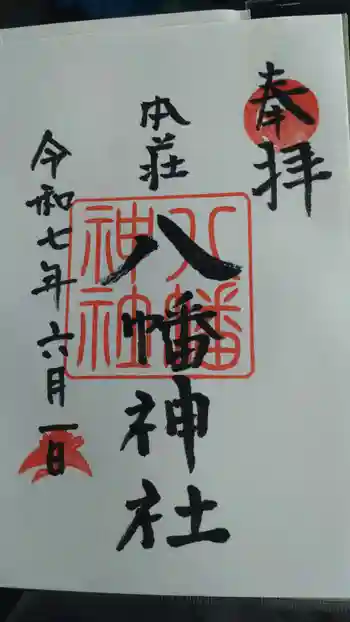 奉拝
本荘
八幡神社
八幡
神社
令和七年六月一日